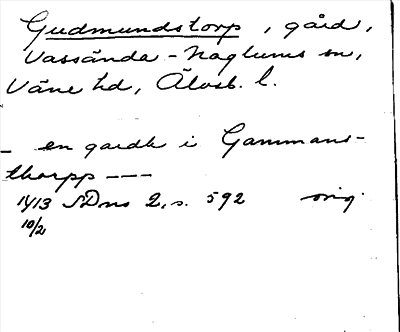 Gudmundstorp, gård,
Vassända-Naglums sn,
Väne hd, Älvsb. l.
_ en gardh i Gammans-
thorpp ---
1413 SDns 2, s. 592 orig.
10/2